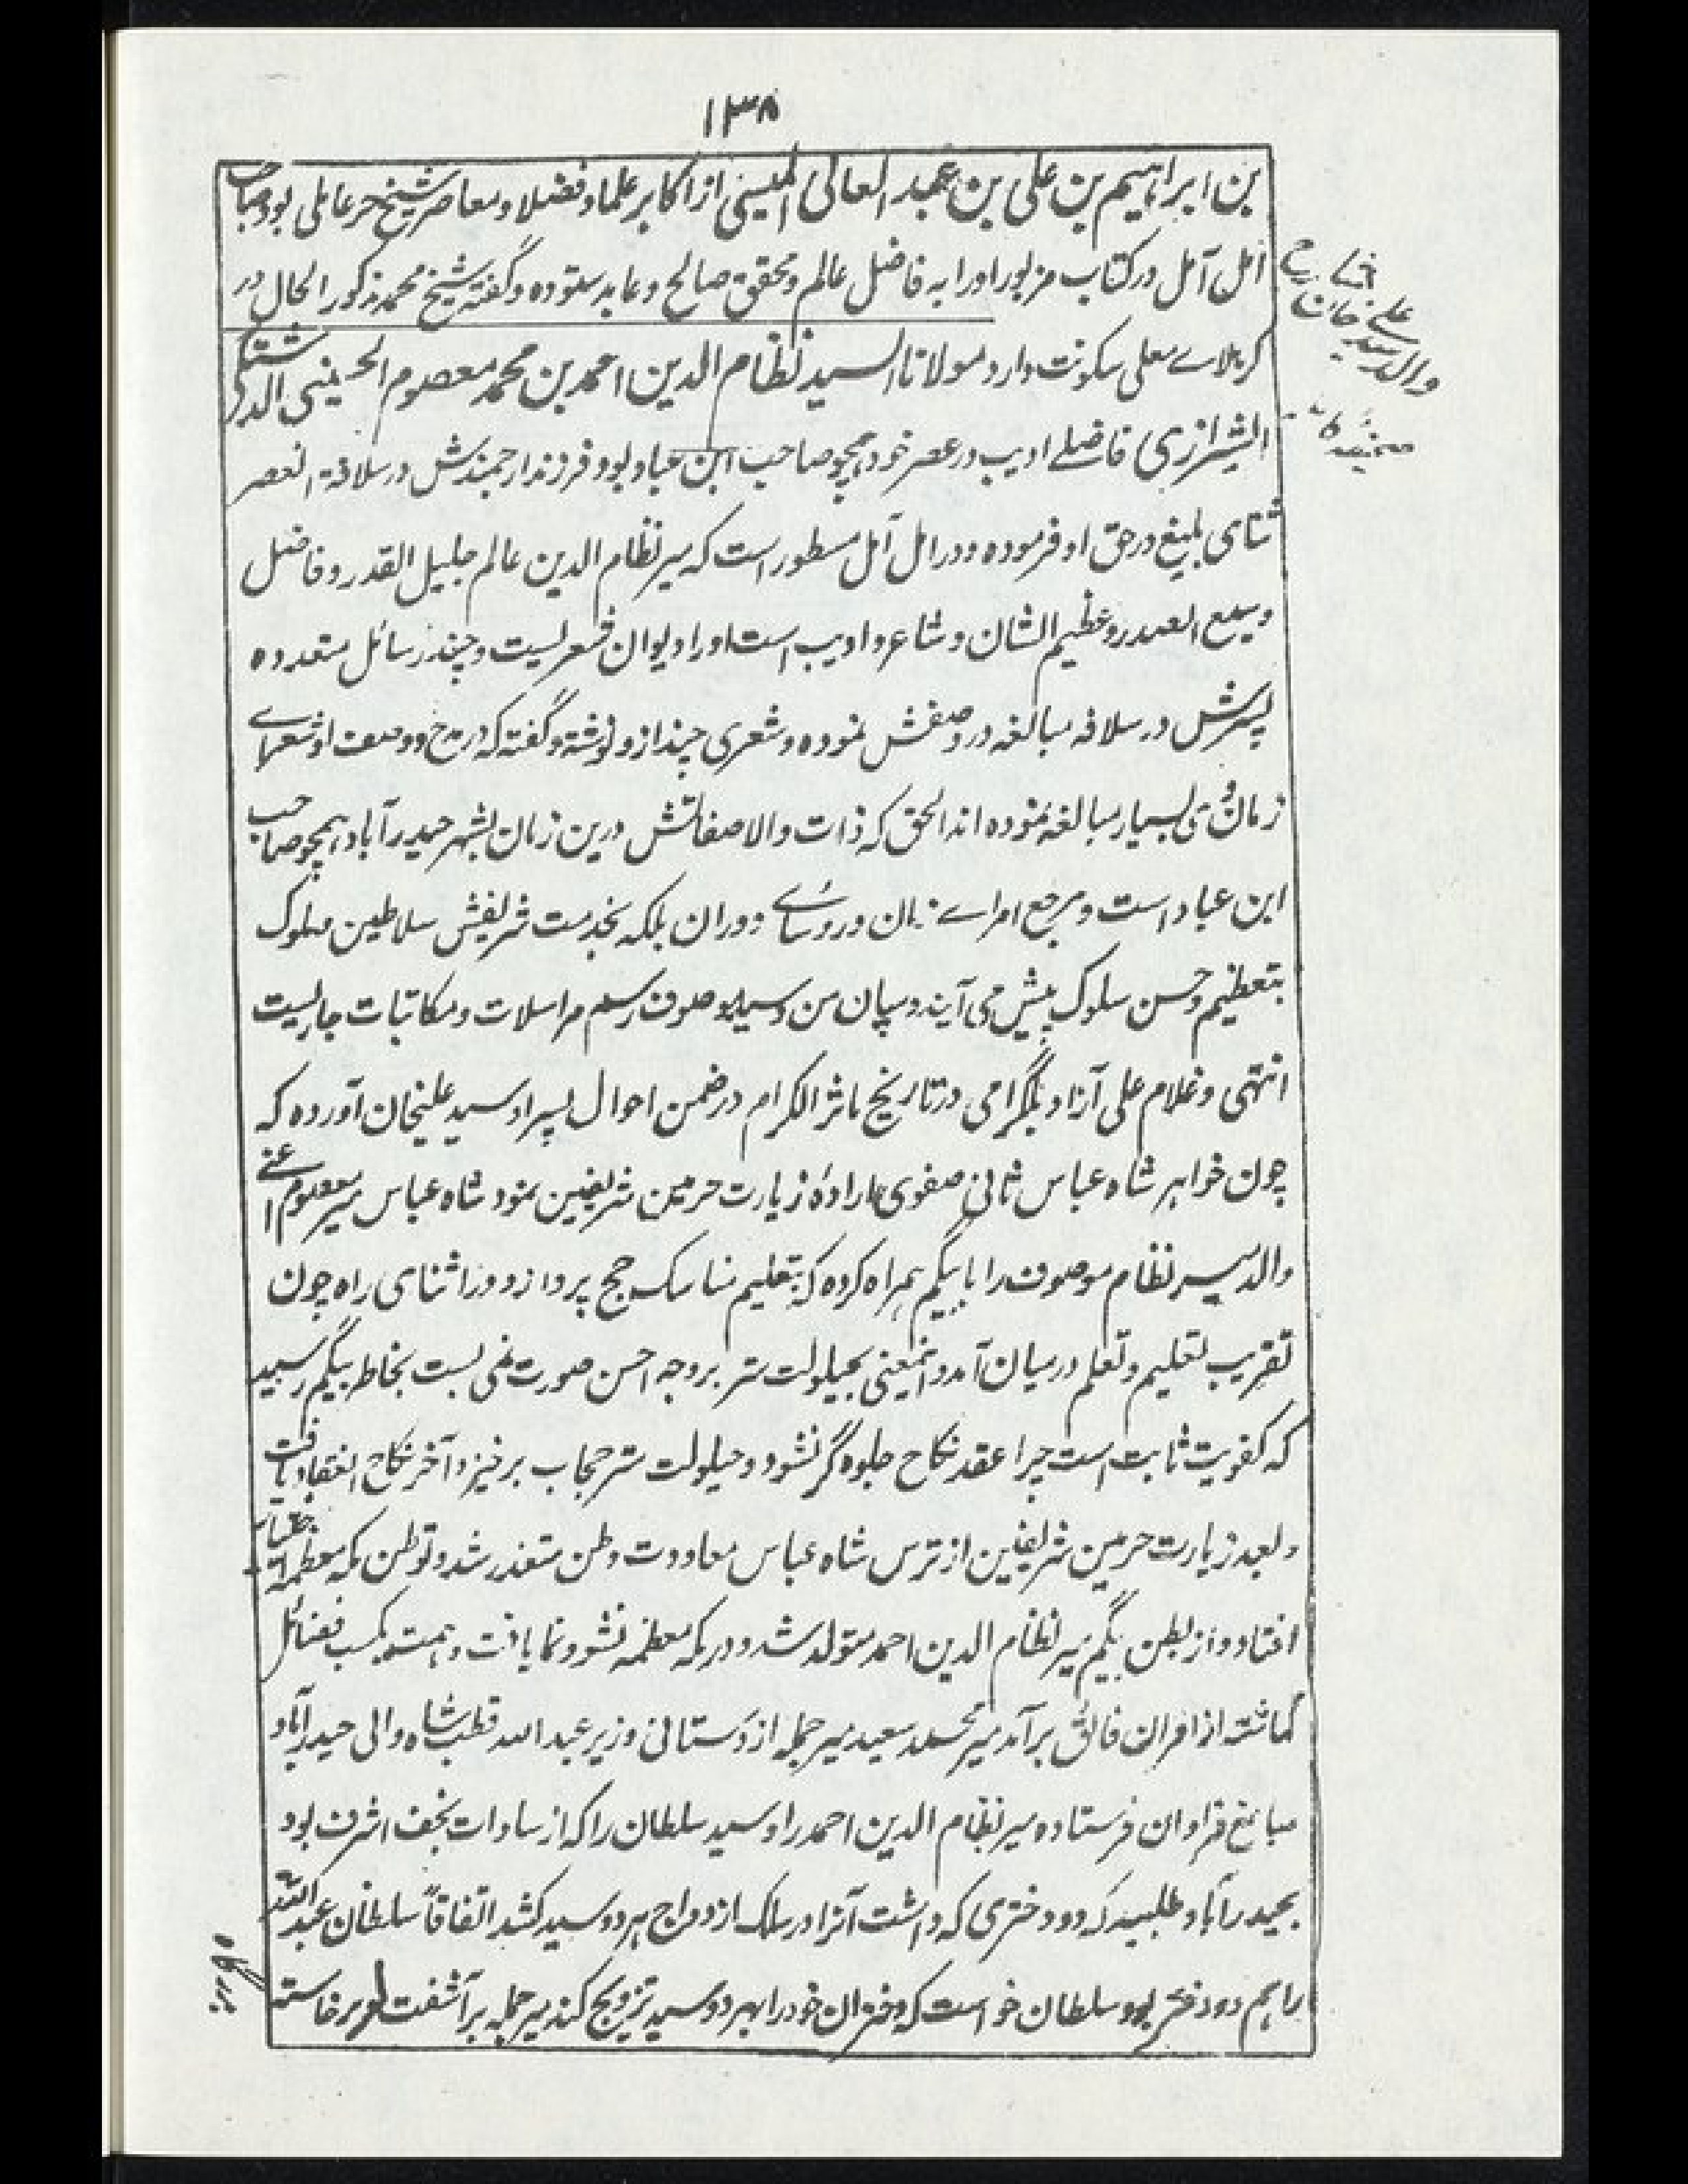 ۱۳۸
بن ابراہیم بن علی بن عبد العالی المیسی از اکابر علما و فضلا و معاصر شیخ حر عاملی بود صاحب
امل آمل در کتاب مزبور اورا به فاضل عالم و محقق صالح و عابد ستوده و گفته شیخ محمد مذکور الحال در
کربلاے معلی سکونت دارد مولانا السید نظام الدین احمد بن محمد معصوم الحسینی الدشتکی
الشیرازی فاضلے ادیب در عصر خود همچو صاحب ابن عباد بود و فرزند ارجمندش در سلافة العصر
ثنای بلیغ در حق او فرموده و در امل آمل مسطور است که میر نظام الدین عالم جلیل القدر و فاضل
وسیع الصدر و عظیم الشان و شاعر و ادیب است اورا دیوان شعریست و چند رسائل متعدده
پسرش در سلافه مبالغه در وصفش نموده و شعری چند ازو نوشته و گفته که در مدح و وصف او شعراے
زمان وی بسیار مبالغه نموده اند الحق که ذات والا صفاتش درین زمان بشهر حیدرآباد همچو صاحب
ابن عباد است و مرجع امراے زمان و رؤساے دوران بلکه بخدمت شریفش سلاطین ملوک
بتعظیم و حسن سلوک پیش می آیند و میان من و سید موصوف رسم مراسلات و مکاتبات جاریست
انتهی و غلام علی آزاد بلگرامی در تاریخ ماثر الکرام در ضمن احوال پسر او سید علیخان آورده که
چون خواهر شاه عباس ثانی صفوی ارادۀ زیارت حرمین شریفین نمود شاه عباس میر معصوم اعنے
والد میر نظام موصوف را با بیگم ہمراه کرده که بتعلیم مناسک حج پردازد و در اثنای راه چون
تقریب تعلیم و تعلم درمیان آمد و اینمعنی بحیلولت ستر بر وجه احسن صورت نمی بست بخاطر بیگم رسید
که کفویت ثابت است چرا عقد نکاح جلوه گر نشود و حیلولت ستر حجاب برخیزد آخر نکاح انعقاد یافت
و بعد زیارت حرمین شریفین از ترس شاه عباس معاودت وطن متعذر شد و توطن مکه معظمه
افتاد و از بطن بیگم میر نظام الدین احمد متولد شد و در مکه معظمه نشو و نما یافت و ہمت بکسب فضائل
گماشته از اقران فائق برآمد میر محمد سعید میر جمله اردستانی وزیر عبد الله قطب شاه والی حیدرآباد
مبالغ فراوان فرستاده میر نظام الدین احمد را و سید سلطان را که از سادات نجف اشرف بود
بحیدرآباد طلبید که دو دختری که داشت آنرا در سلک ازدواج هر دو سید کشد اتفاقاً سلطان عبد الله
را ہم دو دختر بود سلطان خواست که دختران خود را بهر دو سید تزویج کند میر جمله برآشفت برخاسته
علے خان
والد سید